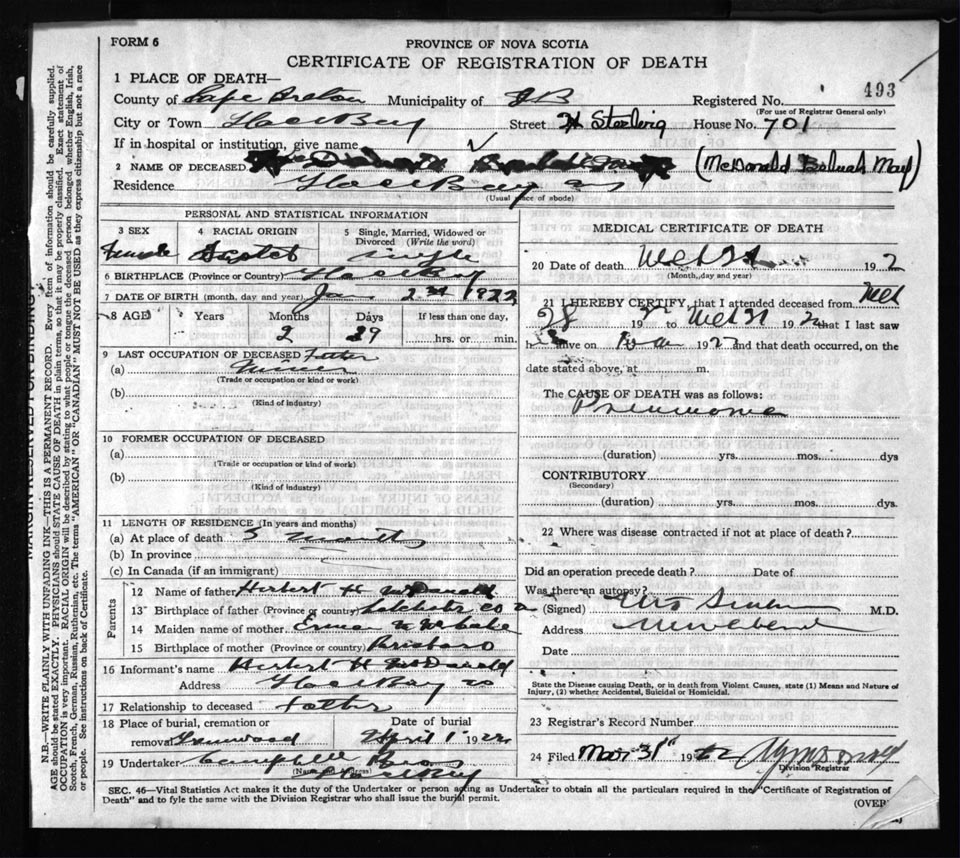 FORM 6
PROVINCE OF NOVA SCOTIA
CERTIFICATE OF REGISTRATION OF DEATH
493
1 PLACE OF DEATH—
County of Cape Breton Municipality of Registered No.
(For use of Registrar General only)
City or Town Glace Bay Street Sterling House No. 701
If in hospital or institution, give name
2 NAME OF DECEASED (McDonald May)
Residence Glace Bay
(Usual place of abode)
PERSONAL AND STATISTICAL INFORMATION
3 SEX 4 RACIAL ORIGIN 5 Single, Married, Widowed or Divorced (Write the word)
Female Single
6 BIRTHPLACE (Province or Country) Glace Bay
7 DATE OF BIRTH (month, day and year) Jan 2nd 1922
8 AGE Years Months Days If less than one day,
2 29 hrs. or min.
9 LAST OCCUPATION OF DECEASED Father
(a) Miner
(Trade or occupation or kind or work)
(b)
(Kind of industry)
10 FORMER OCCUPATION OF DECEASED
(a)
(Trade or occupation or kind of work)
(b)
(Kind of industry)
11 LENGTH OF RESIDENCE (In years and months)
(a) At place of death months
(b) In province
(c) In Canada (if an immigrant)
Parents
12 Name of father Herbert H McDonald
13 Birthplace of father (Province or country) Co
14 Maiden name of mother
15 Birthplace of mother (Province or country)
16 Informant's name Herbert H McDonald
Address Glace Bay
17 Relationship to deceased Father
18 Place of burial, cremation or removal Greenwood Date of burial April 1 1922
19 Undertaker Campbell Bros
(Name and address) Glace Bay
MEDICAL CERTIFICATE OF DEATH
20 Date of death 192
(Month, day and year)
21 I HEREBY CERTIFY, that I attended deceased from
28 19 to 19 that I last saw
h alive on 19 and that death occurred, on the
date stated above, at m.
The CAUSE OF DEATH was as follows:
Pneumonia
(duration) yrs. mos. dys
CONTRIBUTORY
(Secondary)
(duration) yrs. mos. dys.
22 Where was disease contracted if not at place of death?
Did an operation precede death? Date of
Was there an autopsy?
(Signed) M.D.
Address
Date
State the Disease causing Death, or in death from Violent Causes, state (1) Means and Nature of Injury, (2) whether Accidental, Suicidal or Homicidal.
23 Registrar's Record Number
24 Filed Mar 31st 19
Division Registrar
SEC. 46—Vital Statistics Act makes it the duty of the Undertaker or person acting as Undertaker to obtain all the particulars required in the "Certificate of Registration of
Death" and to fyle the same with the Division Registrar who shall issue the burial permit.
(OVER)
MARGIN RESERVED FOR BINDING
N.B.—WRITE PLAINLY WITH UNFADING INK—THIS IS A PERMANENT RECORD. Every item of information should be carefully supplied.
AGE should be stated EXACTLY. PHYSICIANS should STATE CAUSE OF DEATH in plain terms, so that it may be properly classified. Exact statement of
OCCUPATION is very important. RACIAL ORIGIN will be described by stating to what people or tongue the deceased person belonged whether English, Irish,
Scotch, French, German, Russian, Ruthenian, etc. The terms "AMERICAN" OR "CANADIAN" MUST NOT BE USED as they express citizenship but not a race
or people. See instructions on back of Certificate.